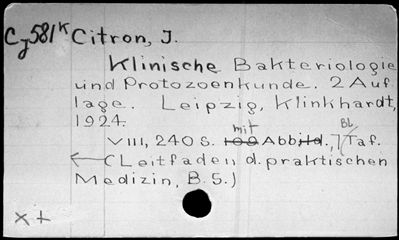 Cy581K Citron, J.
Klinische Bakteriologie
und Protozoenkunde. 2 Auf
lage. Leipzig, Klinkhardt,
1924.
VIII, 240 S. mit Abb., 7 Bl Taf.
(Leitfaden d. praktischen
Medizin, B. 5.)
x +